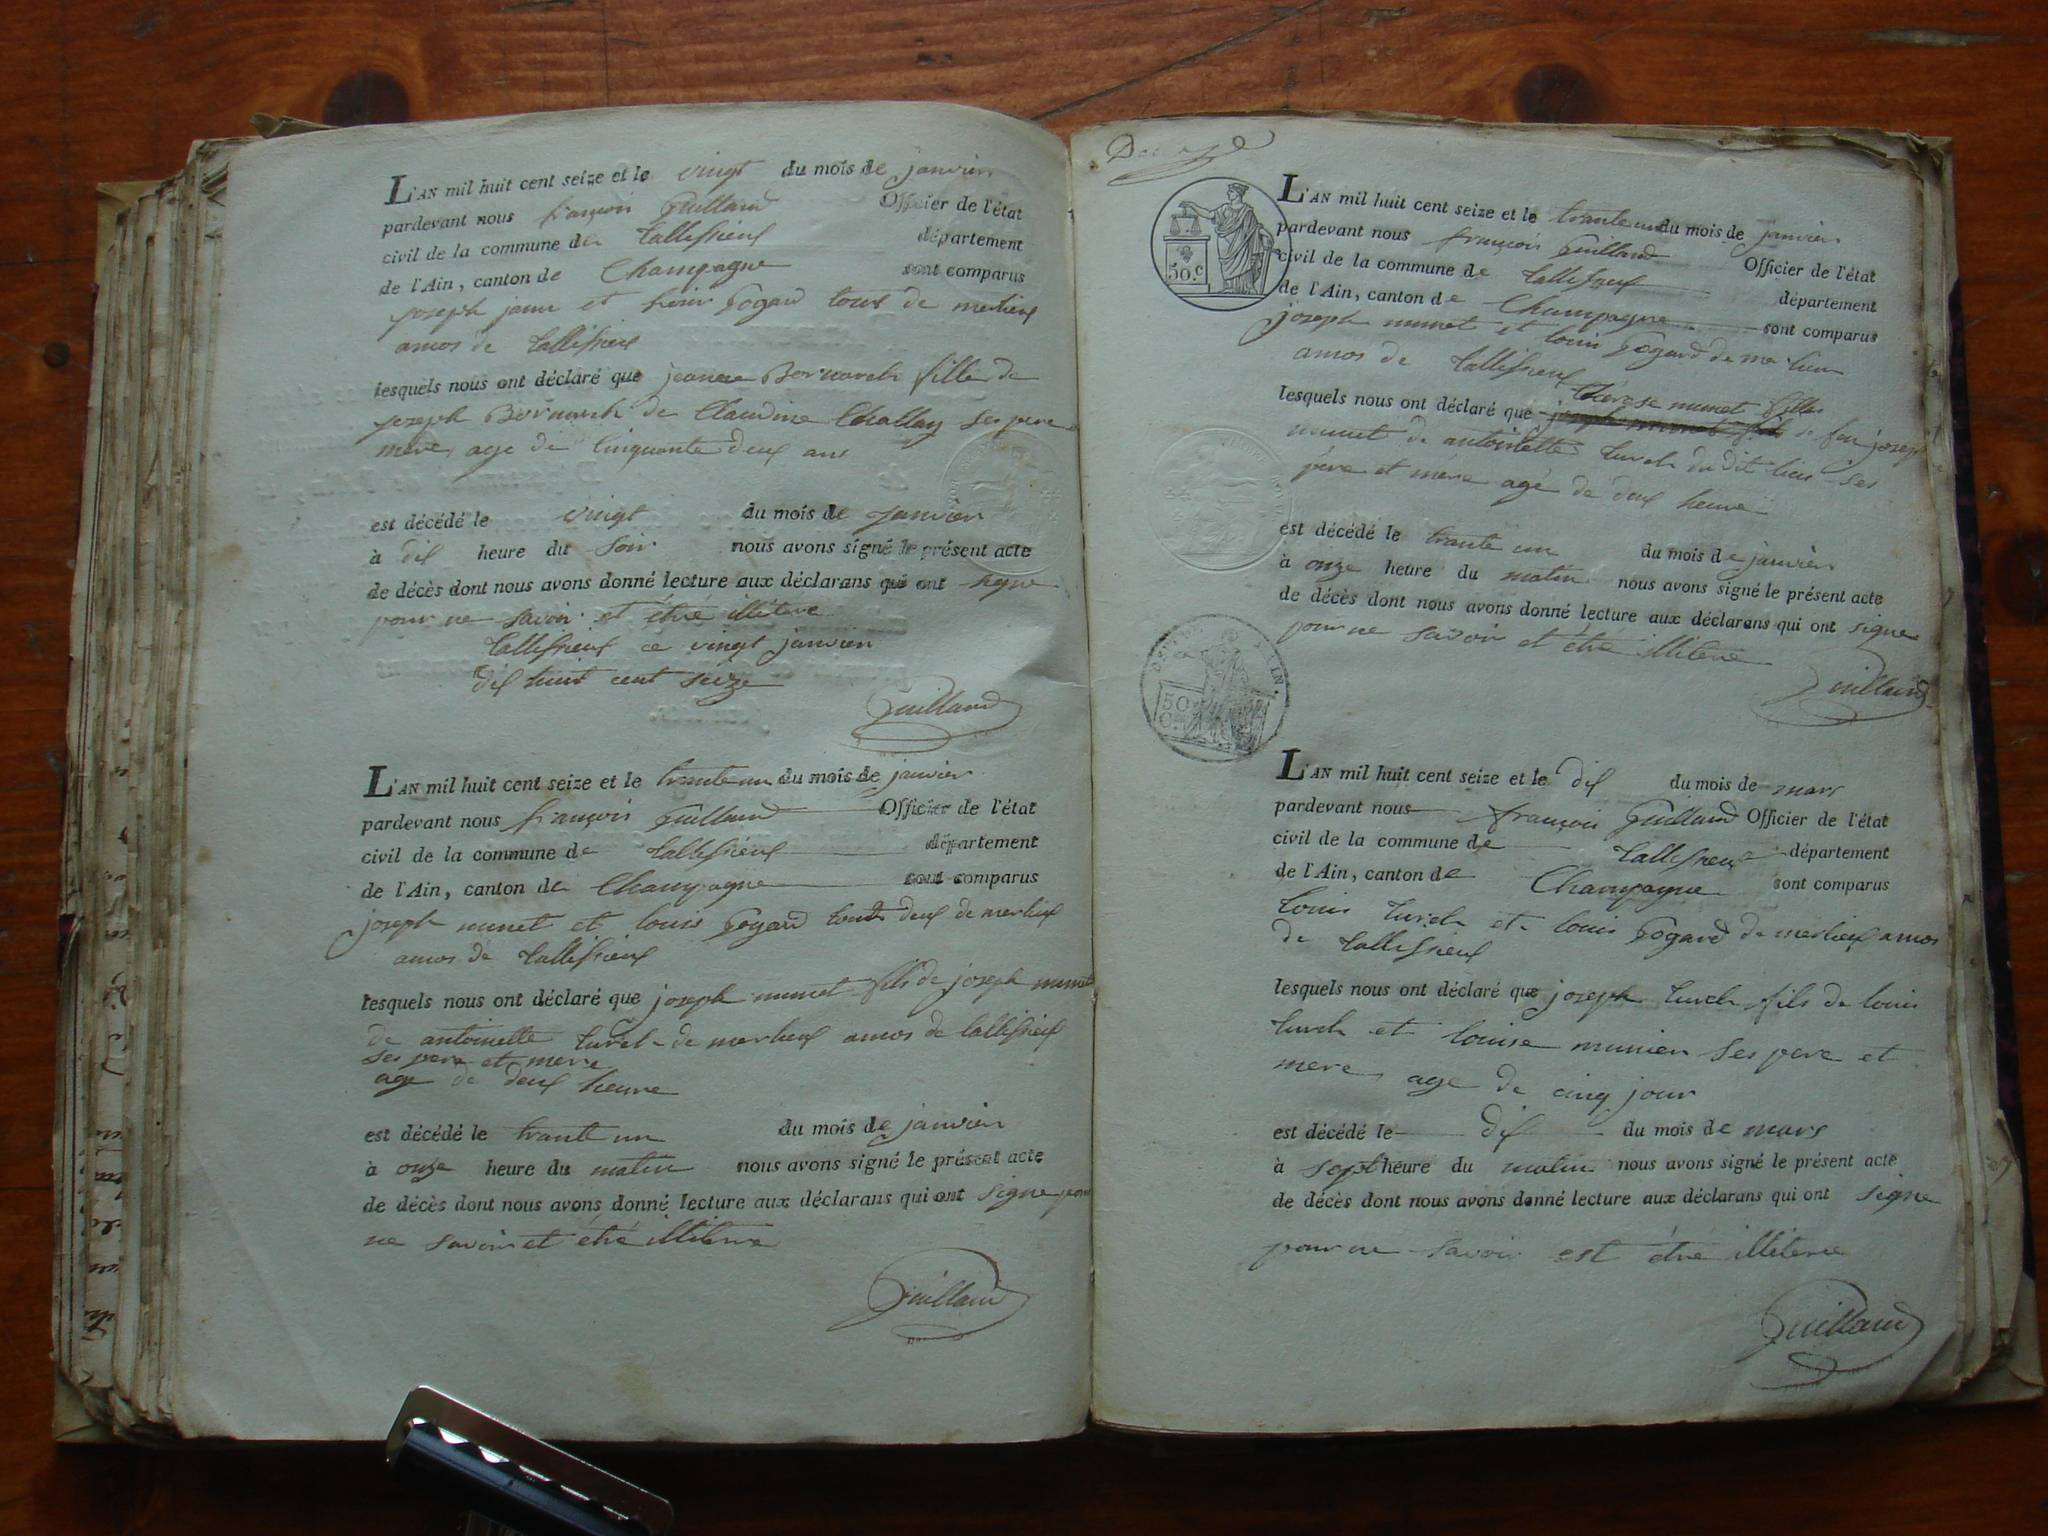 L'AN mil huit cent seize et le vingt du mois de janvier
pardevant nous françois Guilland Officier de l'état
civil de la commune de tallissieux département
de l'Ain, canton de Champagne sont comparus
joseph et Pogard tous de merlieux
amos de tallissieux
lesquels nous ont déclaré que jeanne Bornarch fille de
joseph Bornarch de Claudine Challay ses pere
mere, age de Cinquante deux ans
est décédé le vingt du mois de janvier
à dix heure du soir nous avons signé le présent acte
de décès dont nous avons donné lecture aux déclarans qui ont signe
pour ne savoir et étré illitere
tallissieux ce vingt janvier
dix huit cent seize
Guilland
L'AN mil huit cent seize et le trante un du mois de janvier
pardevant nous françois Guilland Officier de l'état
civil de la commune de tallissieux département
de l'Ain, canton de Champagne sont comparus
joseph munet et louis Pogard touts deux de merlieux
amos de tallissieux
lesquels nous ont déclaré que joseph munet fils de joseph munet
de antoinette turch de merlieux amos de tallissieux
ses pere et mere
age de deux heure
est décédé le trante un du mois de janvier
à onze heure du matin nous avons signé le présent acte
de décès dont nous avons donné lecture aux déclarans qui ont signe pour
ne savoir et étré illitere
Guilland
50.c
L'AN mil huit cent seize et le trante un du mois de janvier
pardevant nous françois Guilland Officier de l'état
civil de la commune de tallissieux département
de l'Ain, canton de Champagne sont comparus
joseph munet et louis Pogard de merlieux
amos de tallissieux
térese munet fille
lesquels nous ont déclaré que joseph munet fils de feu joseph
munet de antoinette turch du dit lieu ses
pére et mére agé de deux heure
est décédé le trante un du mois de janvier
à onze heure du matin nous avons signé le présent acte
de décès dont nous avons donné lecture aux déclarans qui ont signe
pour ne savoir et étré illitere
Guilland
50
L'AN mil huit cent seize et le dix du mois de mars
pardevant nous françois Guilland Officier de l'état
civil de la commune de tallissieux département
de l'Ain, canton de Champagne sont comparus
louis turch et louis Pogard de merlieux amos
de tallissieux
lesquels nous ont déclaré que joseph turch fils de louis
turch et louise munier ses pere et
mere, age de cinq jour
est décédé le dix du mois de mars
à sept heure du matin nous avons signé le présent acte
de décès dont nous avons donné lecture aux déclarans qui ont signe
pour ne savoir est étre illitere
Guilland